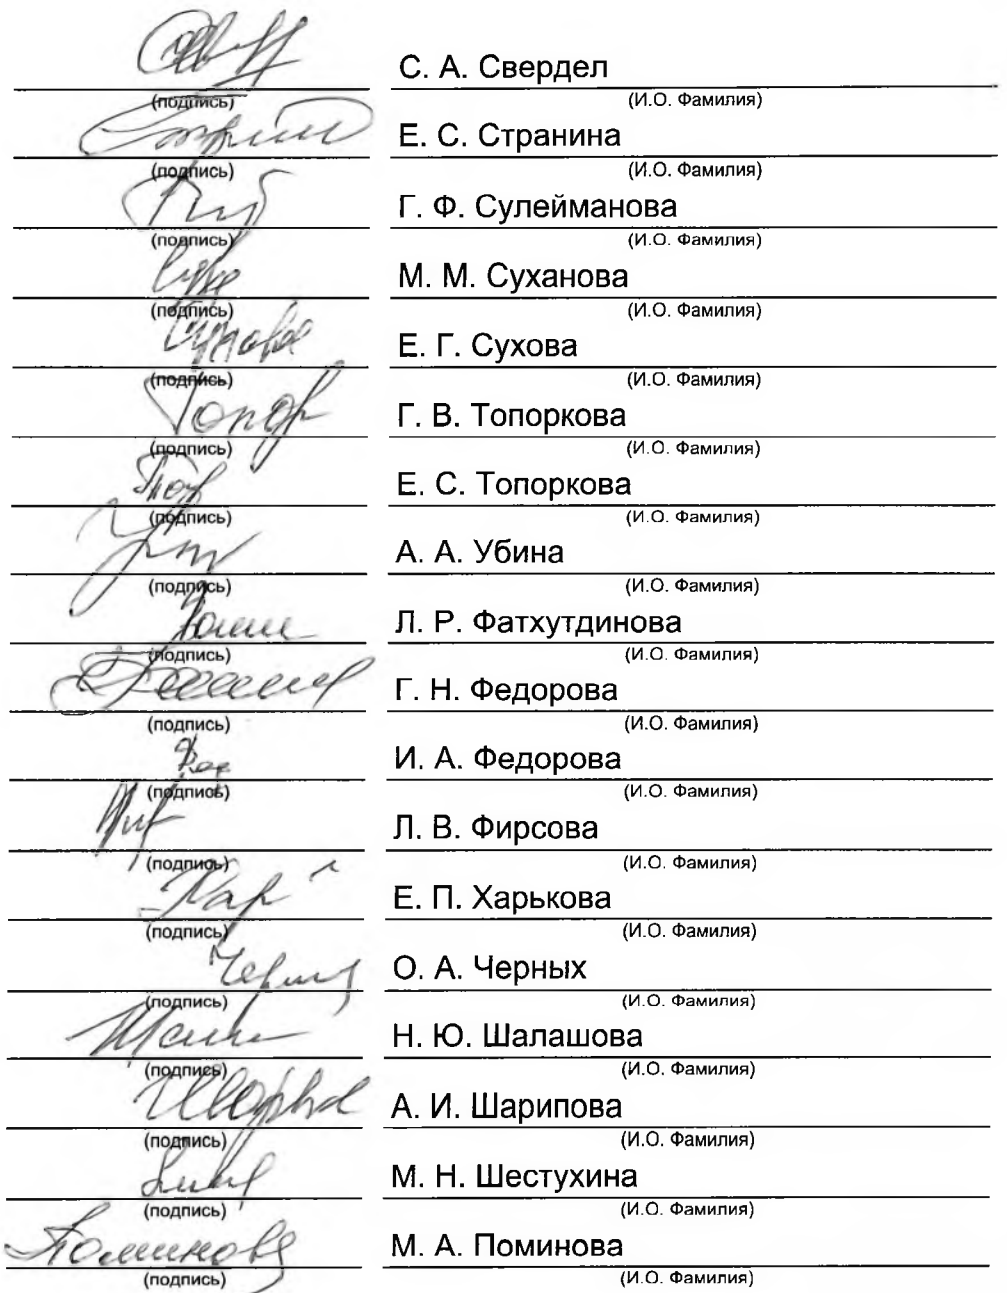 С. А. Свердел
(подпись) (И.О. Фамилия)
Е. С. Странина
(подпись) (И.О. Фамилия)
Г. Ф. Сулейманова
(подпись) (И.О. Фамилия)
М. М. Суханова
(подпись) (И.О. Фамилия)
Сухова Е. Г. Сухова
(подпись) (И.О. Фамилия)
Топор Г. В. Топоркова
(подпись) (И.О. Фамилия)
Е. С. Топоркова
(подпись) (И.О. Фамилия)
А. А. Убина
(подпись) (И.О. Фамилия)
Л. Р. Фатхутдинова
(подпись) (И.О. Фамилия)
Г. Н. Федорова
(подпись) (И.О. Фамилия)
И. А. Федорова
(подпись) (И.О. Фамилия)
Л. В. Фирсова
(подпись) (И.О. Фамилия)
Хар Е. П. Харькова
(подпись) (И.О. Фамилия)
О. А. Черных
(подпись) (И.О. Фамилия)
Н. Ю. Шалашова
(подпись) (И.О. Фамилия)
А. И. Шарипова
(подпись) (И.О. Фамилия)
М. Н. Шестухина
(подпись) (И.О. Фамилия)
Поминова М. А. Поминова
(подпись) (И.О. Фамилия)